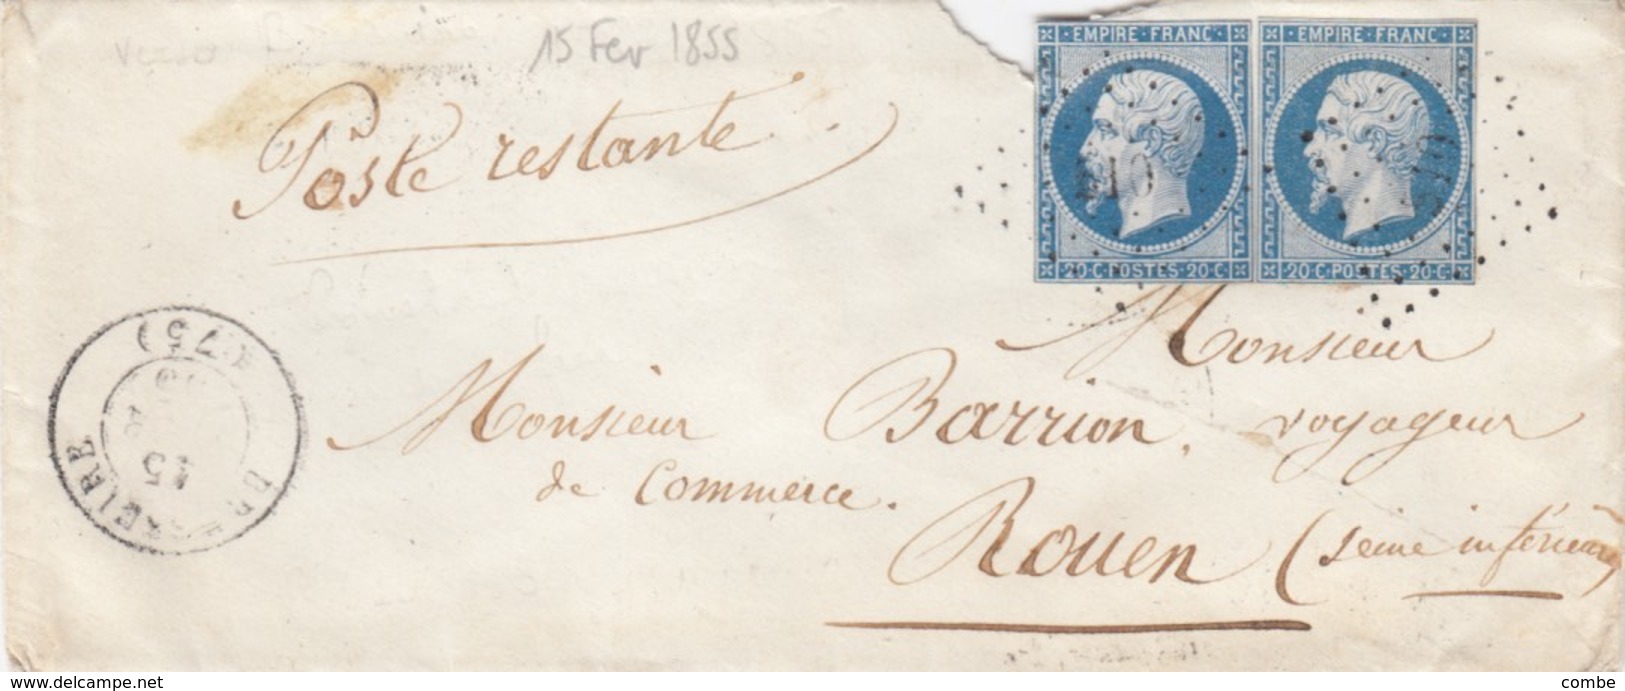 15 Fev 1855
verso
Poste restante
EMPIRE · FRANC · EMPIRE · FRANC ·
20·C·POSTES·20·C· 20·C·POSTES·20·C·
(75)
15
Monsieur
Monsieur Barrion, voyageur
de Commerce.
Rouen (seine inférieure)
www.delcampe.net
combe